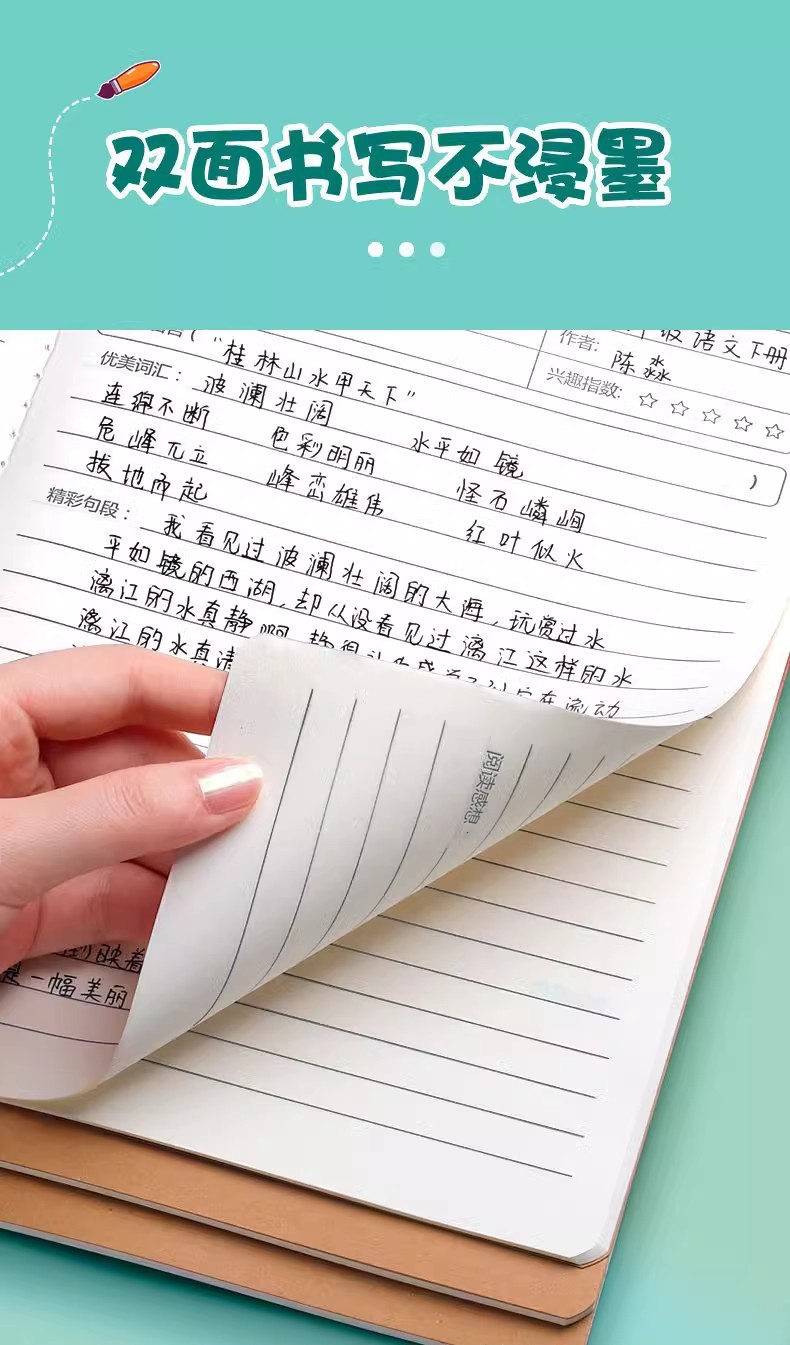 双面书写不浸墨
"桂林山水甲天下"
级语文下册
作者: 陈淼
兴趣指数: ☆☆☆☆☆
优美词汇: 波澜壮阔 水平如镜
连绵不断 色彩明丽 怪石嶙峋
危峰兀立 峰峦雄伟 红叶似火
拔地而起
精彩句段: 我看见过波澜壮阔的大海,玩赏过水
平如镜的西湖,却从没看见过漓江这样的水
漓江的水真静啊,
漓江的水真清
流动
阅读感想:
映着
一幅美丽